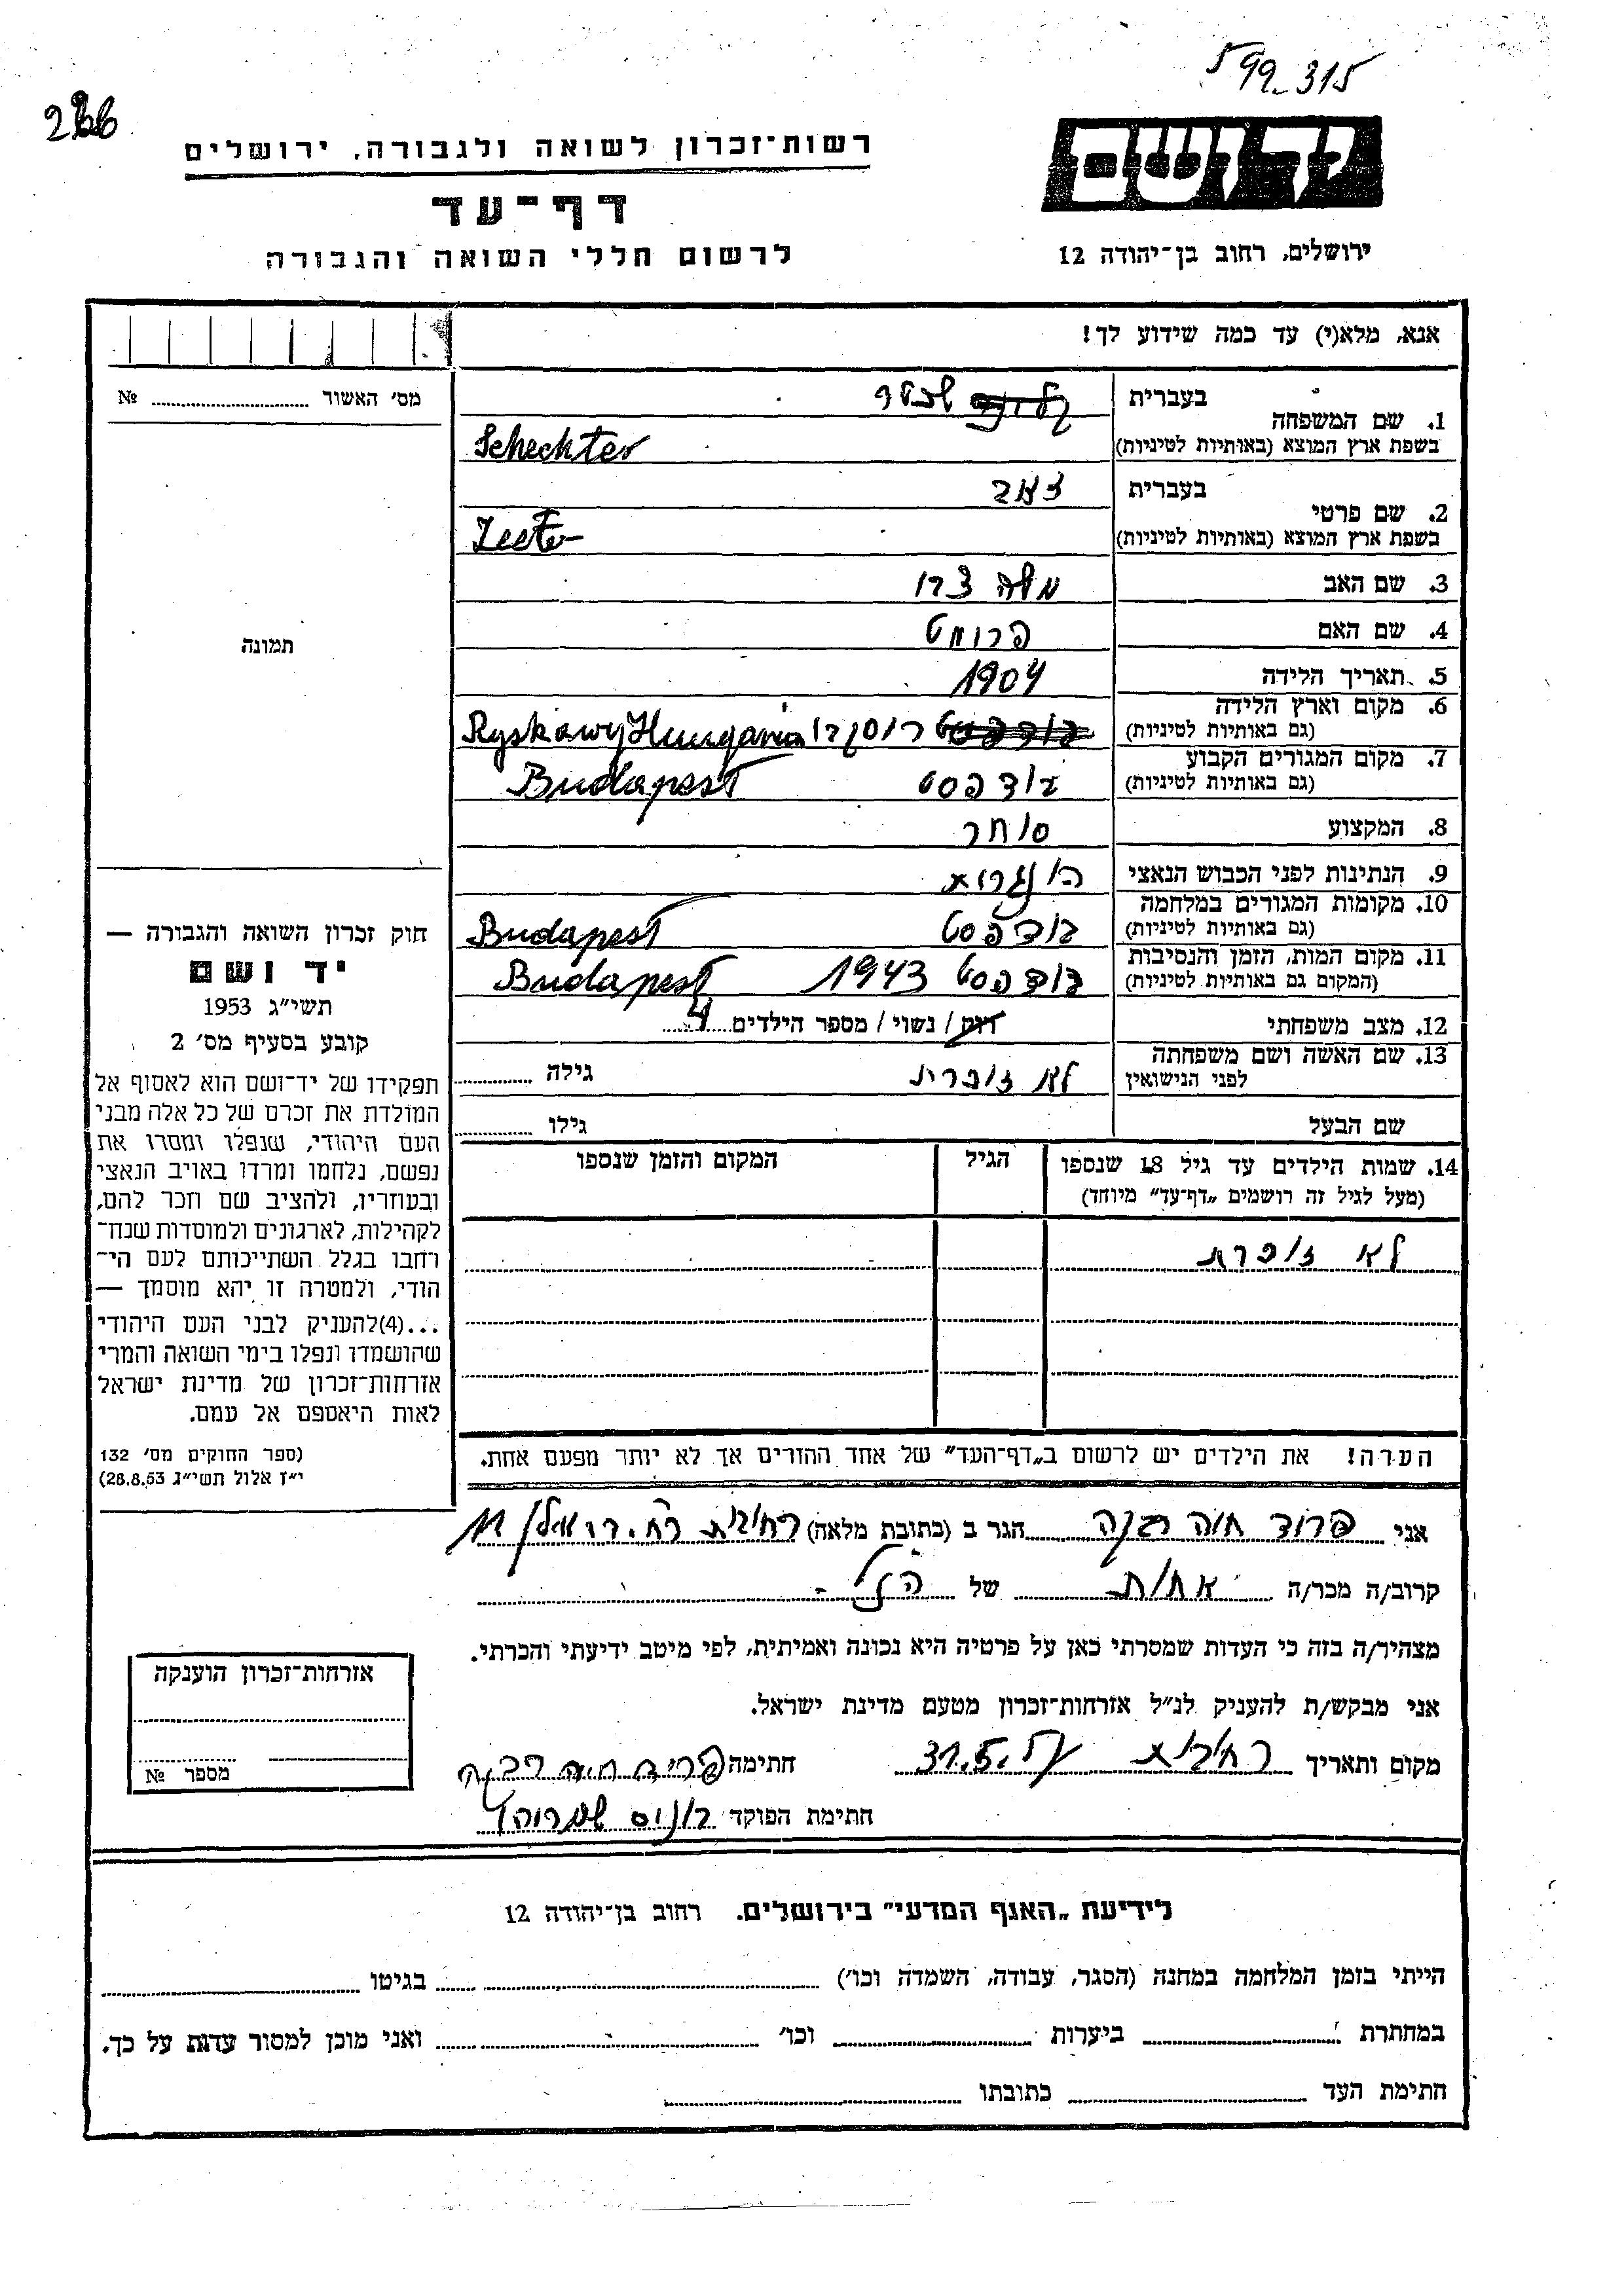 592-315
רשות-זכרון לשואה ולגבורה, ירושלים
דף-עד
לרשום חללי השואה והגבורה
יד ושם
ירושלים, רחוב בן-יהודה 12
אנא, מלא(י) עד כמה שידוע לך!
מס' האשור № 
תמונה
1. שם המשפחה
בעברית שכטר
בשפת ארץ המוצא (באותיות לטיניות) Schechter
2. שם פרטי
בעברית זאב
בשפת ארץ המוצא (באותיות לטיניות)
3. שם האב משה
4. שם האם פרומט
5. תאריך הלידה 1904
6. מקום וארץ הלידה
(גם באותיות לטיניות) בודפסט
7. מקום המגורים הקבוע
(גם באותיות לטיניות) בודפסט Budapest
8. המקצוע סוחר
9. הנתינות לפני הכבוש הנאצי הונגרית
10. מקומות המגורים במלחמה
(גם באותיות לטיניות) בודפסט Budapest
11. מקום המות, הזמן והנסיבות
(המקום גם באותיות לטיניות) בודפסט 1943 Budapest
12. מצב משפחתי רוק / נשוי / מספר הילדים 4
13. שם האשה ושם משפחתה
לפני הנישואין לא זוכרת גילה
שם הבעל גילו
14. שמות הילדים עד גיל 18 שנספו
(מעל לגיל זה רושמים „דף-עד" מיוחד)
הגיל
המקום והזמן שנספו
לא זוכרת
הערה! את הילדים יש לרשום ב„דף-העד" של אחד ההורים אך לא יותר מפעם אחת.
חוק זכרון השואה והגבורה —
יד ושם
תשי"ג 1953
קובע בסעיף מס' 2
תפקידו של יד-ושם הוא לאסוף אל
המולדת את זכרם של כל אלה מבני
העם היהודי, שנפלו ומסרו את
נפשם, נלחמו ומרדו באויב הנאצי
ובעוזריו, ולהציב שם וזכר להם,
לקהילות, לארגונים ולמוסדות שנח-
רבו בגלל השתייכותם לעם הי-
הודי, ולמטרה זו יהא מוסמך —
...(4)להעניק לבני העם היהודי
שהושמדו ונפלו בימי השואה והמרי
אזרחות-זכרון של מדינת ישראל
לאות היאספם אל עמם.
(ספר החוקים מס' 132
י"ז אלול תשי"ג 28.8.53)
אני פרוד חוה רבקה הגר ב (כתובת מלאה) רחובות רח. 11
קרוב/ה מכר/ה אחות של הנ"ל
מצהיר/ה בזה כי העדות שמסרתי כאן על פרטיה היא נכונה ואמיתית, לפי מיטב ידיעתי והכרתי.
אני מבקש/ת להעניק לנ"ל אזרחות-זכרון מטעם מדינת ישראל.
מקום ותאריך רחובות 31.5. חתימה
חתימת הפוקד
אזרחות-זכרון הוענקה
מספר №
לידיעת „האגף המדעי" בירושלים. רחוב בן-יהודה 12
הייתי בזמן המלחמה במחנה (הסגר, עבודה, השמדה וכו') בגיטו
במחתרת ביערות וכו' ואני מוכן למסור עדות על כך.
חתימת העד כתובתו